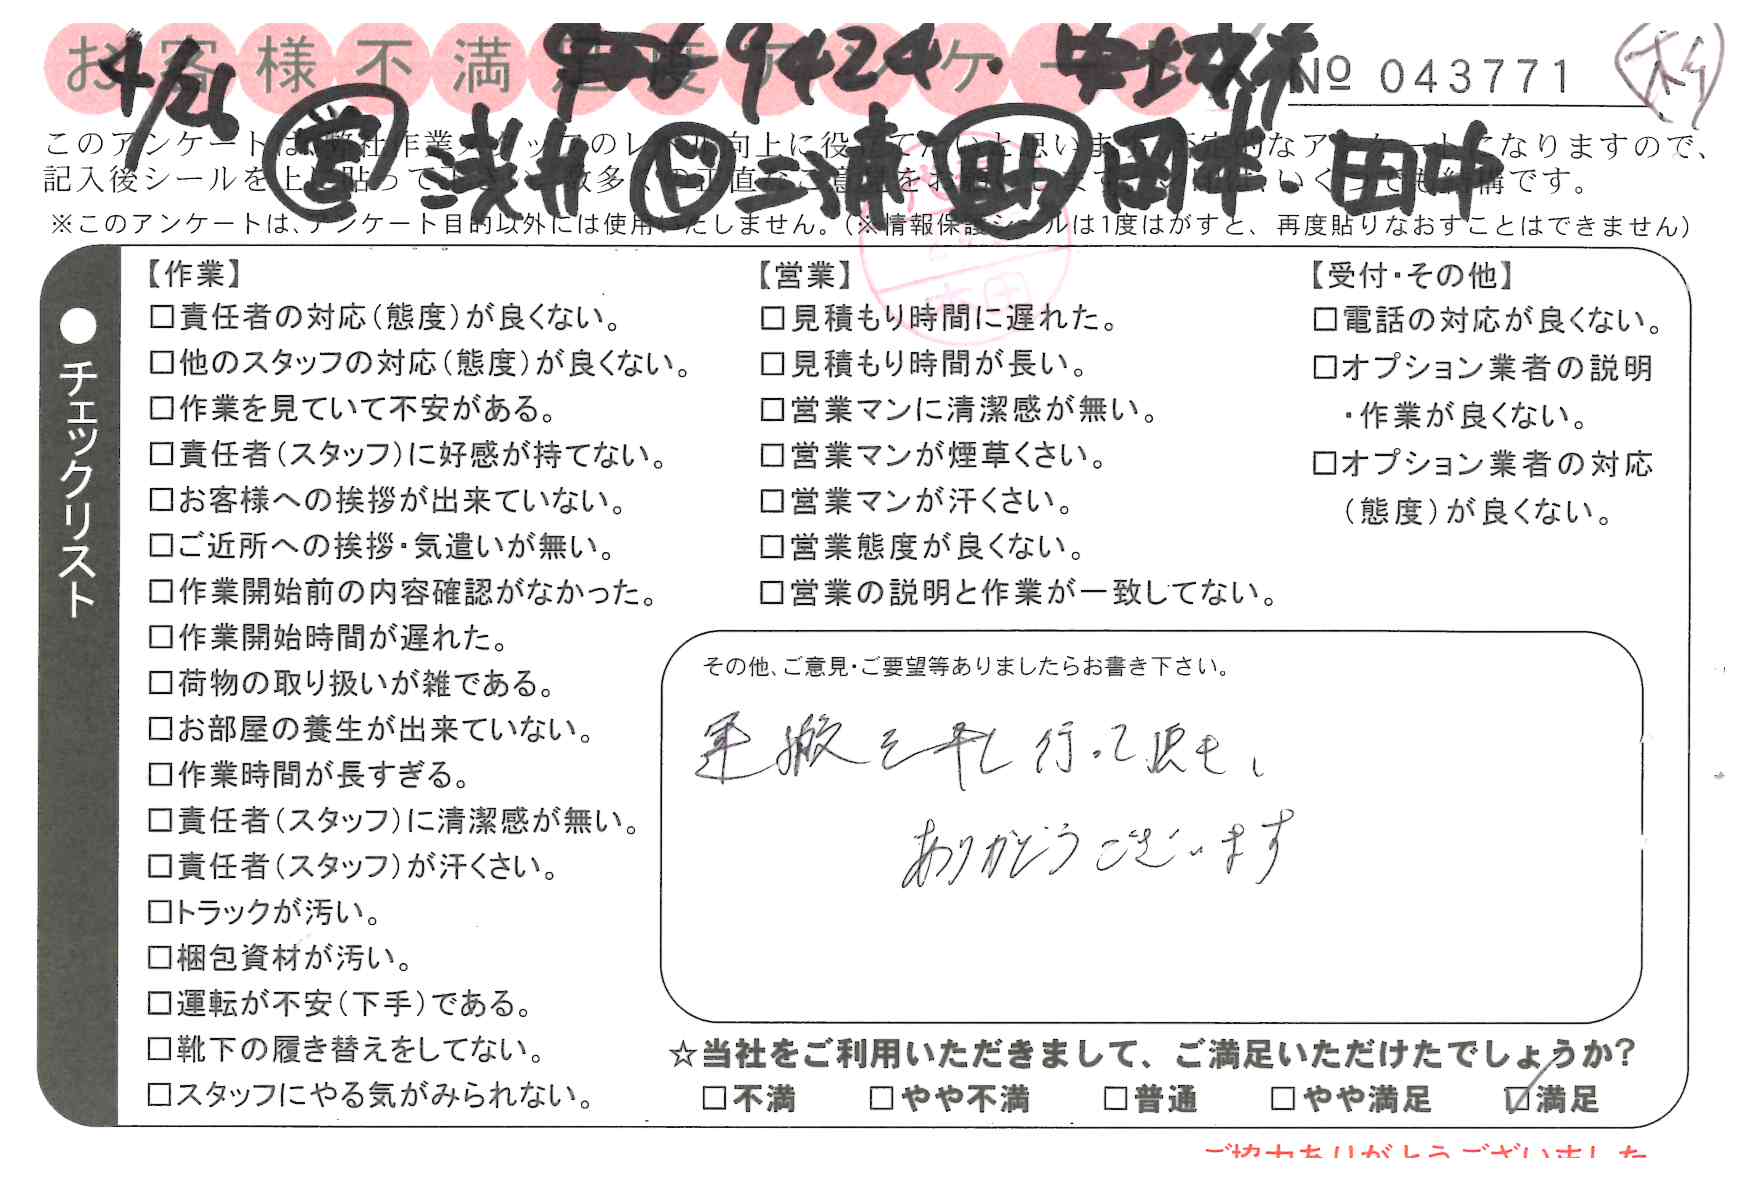 お客様不満足度アンケート
4/26 9424.
№ 043771
営 浅井 ド 三浦 助 岡本. 田中
このアンケートは、弊社作業スタッフのレベル向上に役立てたいと思います。不定的なアンケートになりますので、
記入後シールを上に貼って下さい。数多くの正直なご意見をお
いくつでも結構です。
※このアンケートは、アンケート目的以外には使用いたしません。（※情報保護シールは1度はがすと、再度貼りなおすことはできません）
●チェックリスト
【作業】
□責任者の対応（態度）が良くない。
□他のスタッフの対応（態度）が良くない。
□作業を見ていて不安がある。
□責任者（スタッフ）に好感が持てない。
□お客様への挨拶が出来ていない。
□ご近所への挨拶・気遣いが無い。
□作業開始前の内容確認がなかった。
□作業開始時間が遅れた。
□荷物の取り扱いが雑である。
□お部屋の養生が出来ていない。
□作業時間が長すぎる。
□責任者（スタッフ）に清潔感が無い。
□責任者（スタッフ）が汗くさい。
□トラックが汚い。
□梱包資材が汚い。
□運転が不安（下手）である。
□靴下の履き替えをしてない。
□スタッフにやる気がみられない。
【営業】
□見積もり時間に遅れた。
□見積もり時間が長い。
□営業マンに清潔感が無い。
□営業マンが煙草くさい。
□営業マンが汗くさい。
□営業態度が良くない。
□営業の説明と作業が一致してない。
【受付・その他】
□電話の対応が良くない。
□オプション業者の説明
・作業が良くない。
□オプション業者の対応
（態度）が良くない。
その他、ご意見・ご要望等ありましたらお書き下さい。
運搬を早く行って頂き、
ありがとうございます
☆当社をご利用いただきまして、ご満足いただけたでしょうか？
□不満 □やや不満 □普通 □やや満足 ☑満足
ご協力ありがとうございました